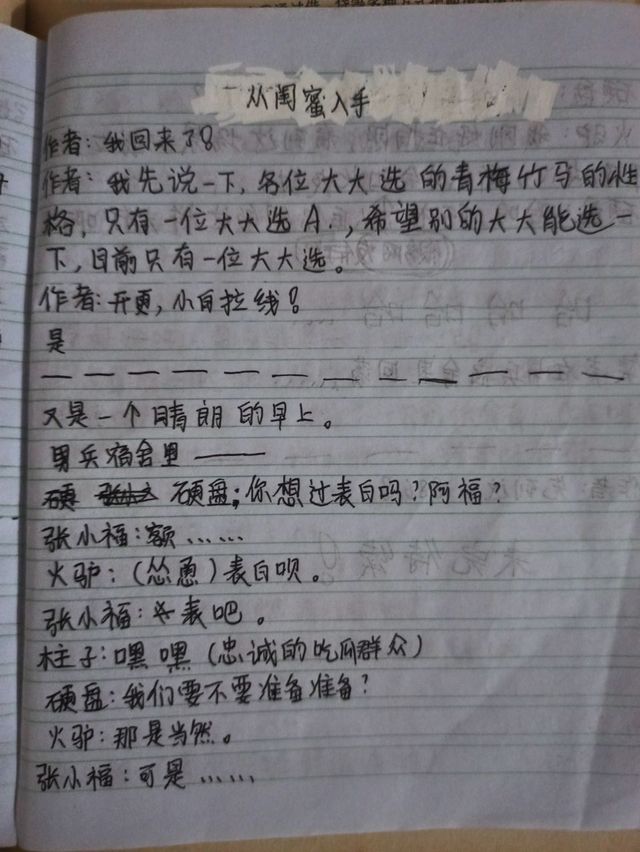 从闺蜜入手
作者：我回来了！
作者：我先说一下，各位大大选的青梅竹马的性
格，只有一位大大选A.，希望别的大大能选一
下，目前只有一位大大选。
作者：开更，小白拉线！
是
— — — — — — — — — — — —
又是一个晴朗的早上。
男兵宿舍里 ——
硬盘；你想过表白吗？阿福？
张小福：额……
火驴：（怂恿）表白呗。
张小福：表吧。
柱子：嘿嘿（忠诚的吃瓜群众）
硬盘：我们要不要准备准备？
火驴：那是当然。
张小福：可是……